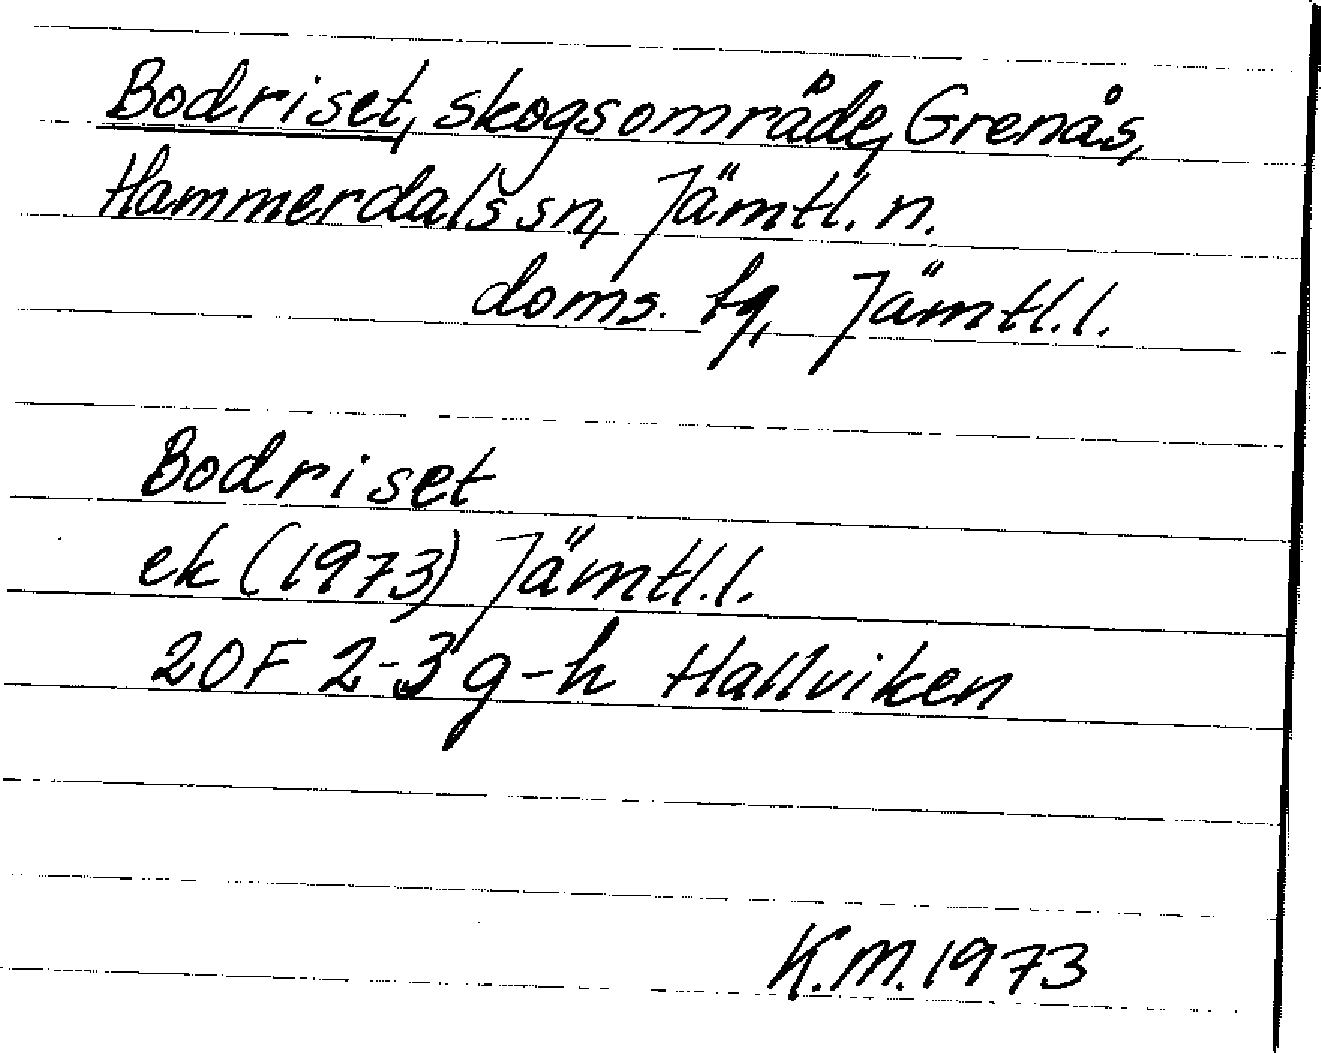 Bodriset, skogsområde, Grenås,
Hammerdals sn, Jämtl. n.
doms. fq, Jämtl. l.
Bodriset
ek (1973) Jämtl. l.
20F 2-3 g-h Hallviken
K.M. 1973